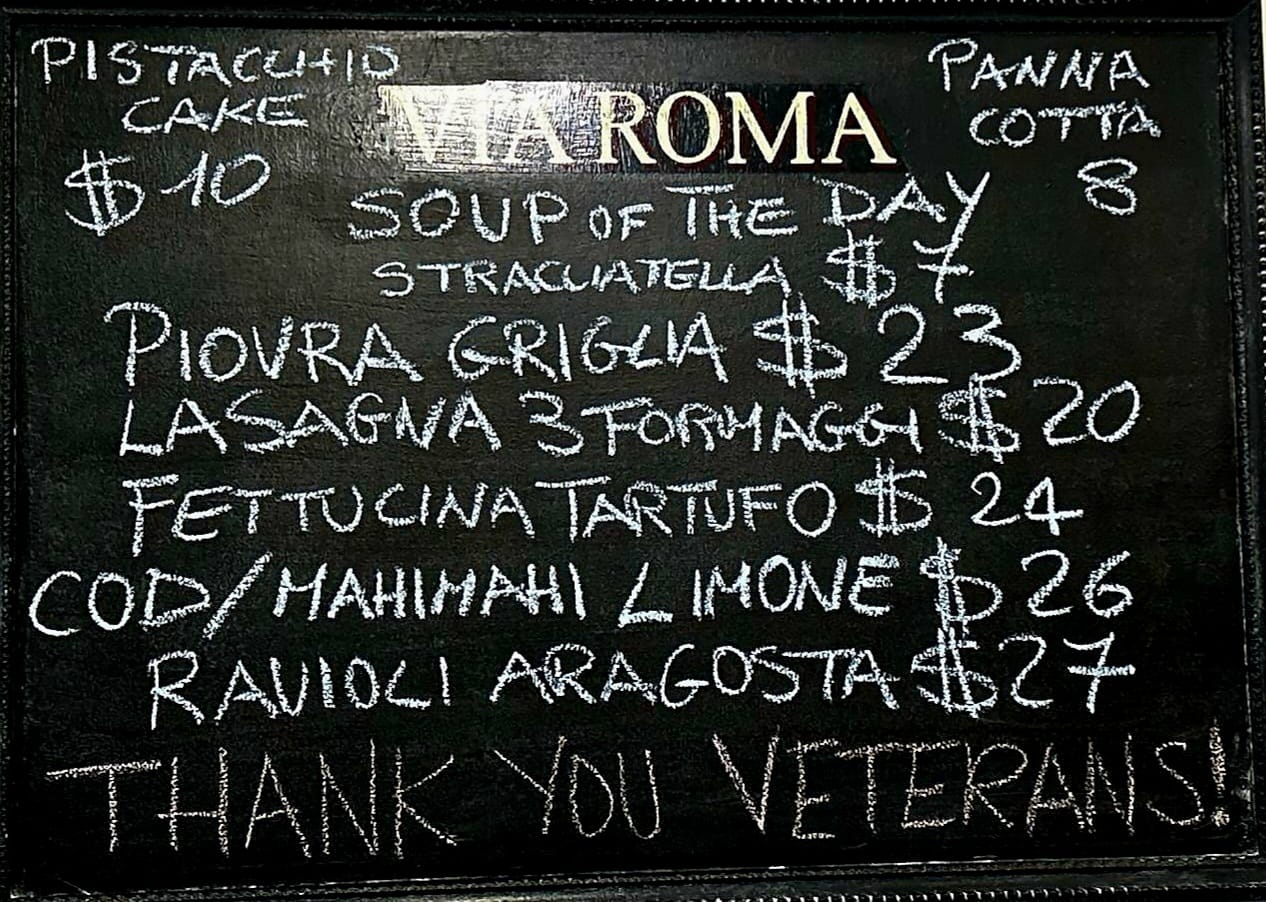 PISTACCHIO
CAKE
$10
PANNA
COTTA
8
VIA ROMA
SOUP OF THE DAY
STRACCIATELLA $7
PIOVRA GRIGLIA $23
LASAGNA 3 FORMAGGI $20
FETTUCINA TARTUFO $24
COD/MAHIMAHI LIMONE $26
RAVIOLI ARAGOSTA $27
THANK YOU VETERANS!